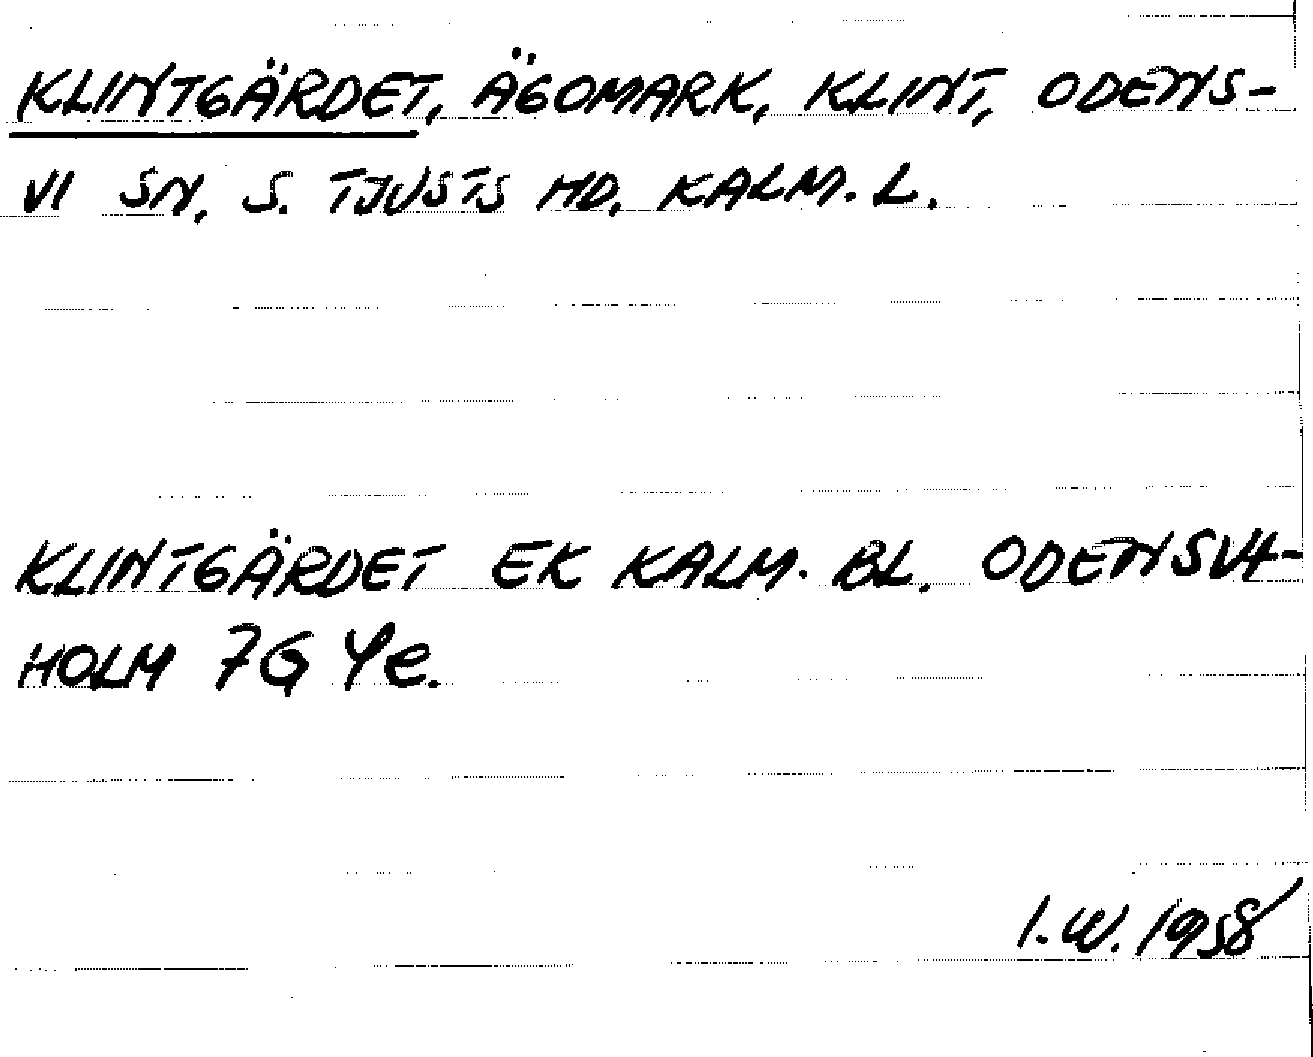 KLINTGÄRDET, ÄGOMARK, KLINT, ODENS-
VI SN, S. TJUSTS HD, KALM. L.
KLINTGÄRDET EK KALM. BL. ODENSVI-
HOLM 7G 4e.
I.W. 1958